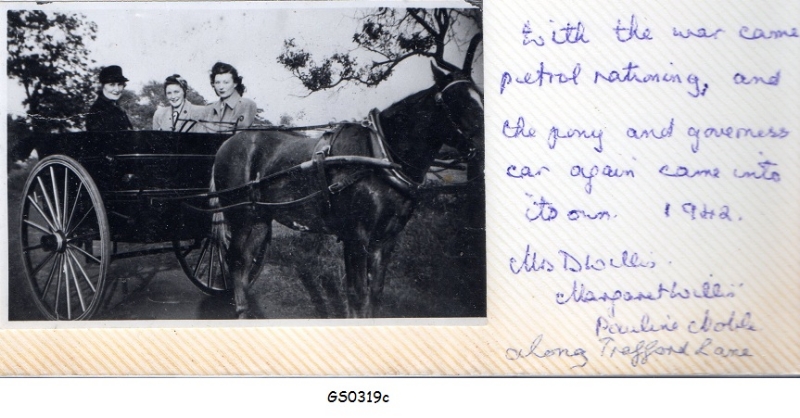 With the war came
pietrol rationing, and
the pony and governess
car again came into
its own. 1942.
Mrs D Willis.
Margaret Willis
Pauline Noble
along Trafford Lane
GS0319c